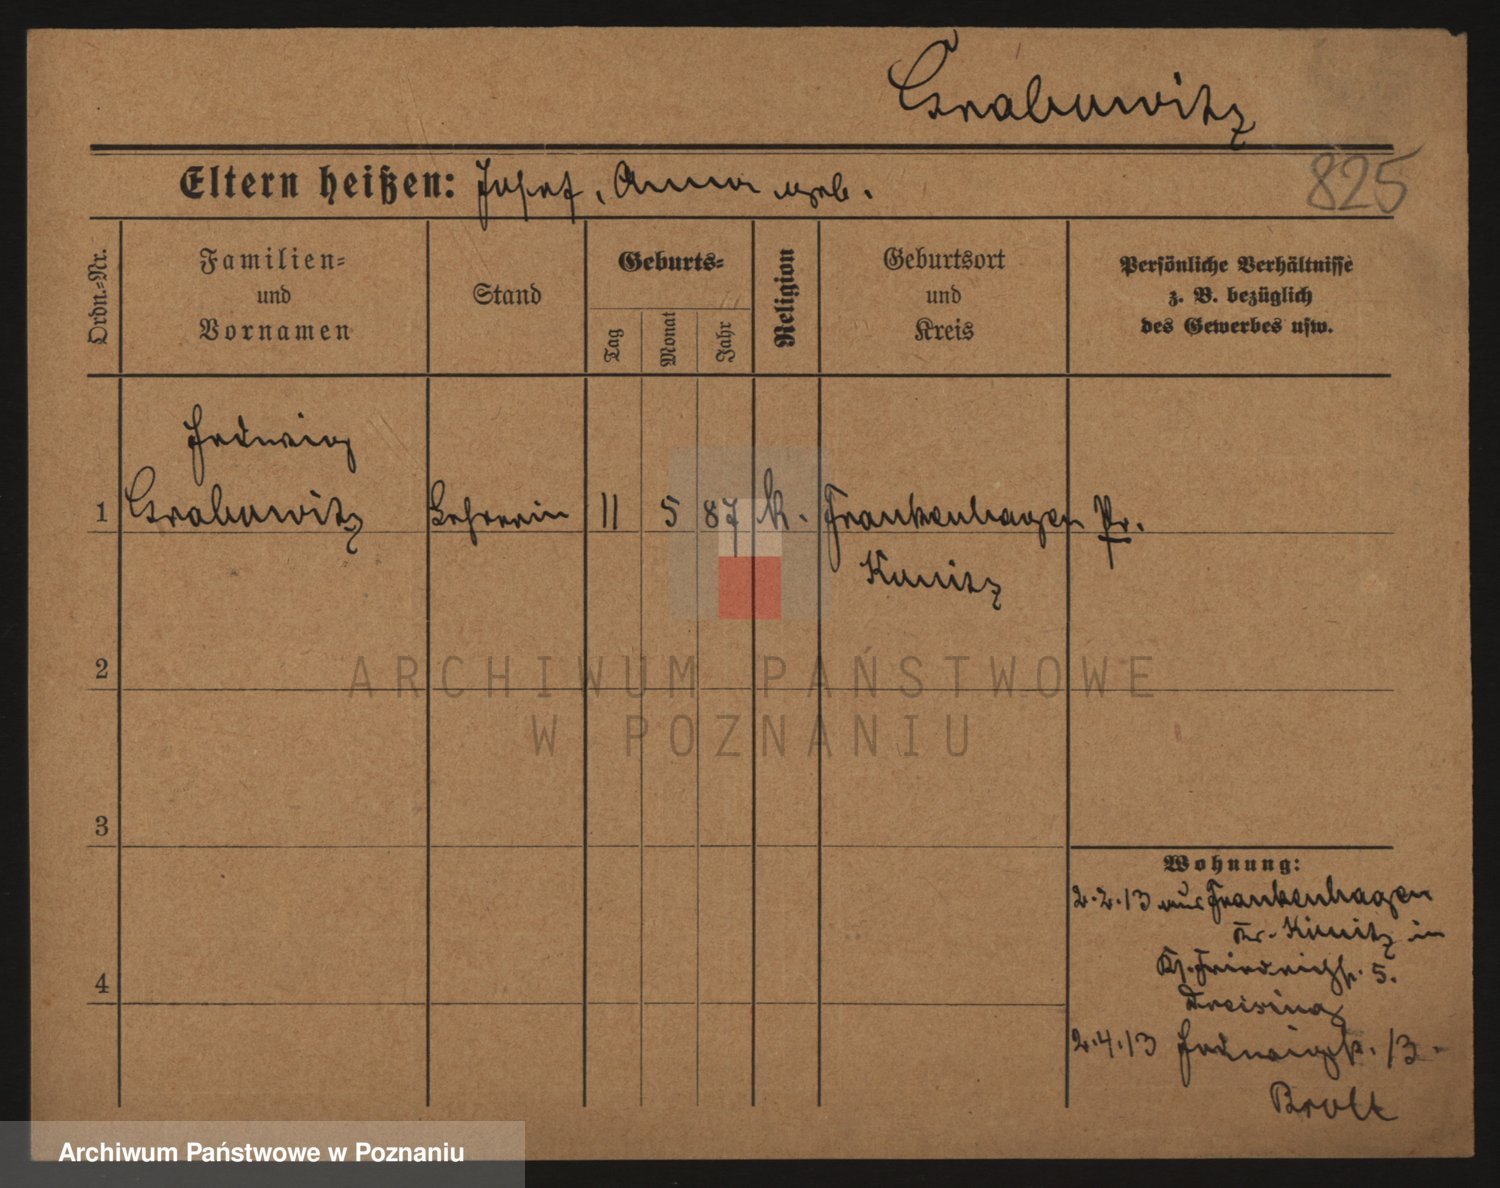 Grabowitz
825
Eltern heißen: Josef, Anna geb.
Ordn.-Nr.
Familien-
und
Vornamen
Stand
Geburts-
Tag
Monat
Jahr
Religion
Geburtsort
und
Kreis
Persönliche Verhältnisse
z. B. bezüglich
des Gewerbes usw.
Hedwig
1 Grabowitz Lehrerin 11 5 87 k. Frankenhagen Pr.
Konitz
2
3
4
Wohnung:
2.2.13 aus Frankenhagen
Kr. Konitz in
Friedrichstr. 5.
2.4.13 Hedwigstr. 13.
ARCHIWUM PAŃSTWOWE
W POZNANIU
Archiwum Państwowe w Poznaniu